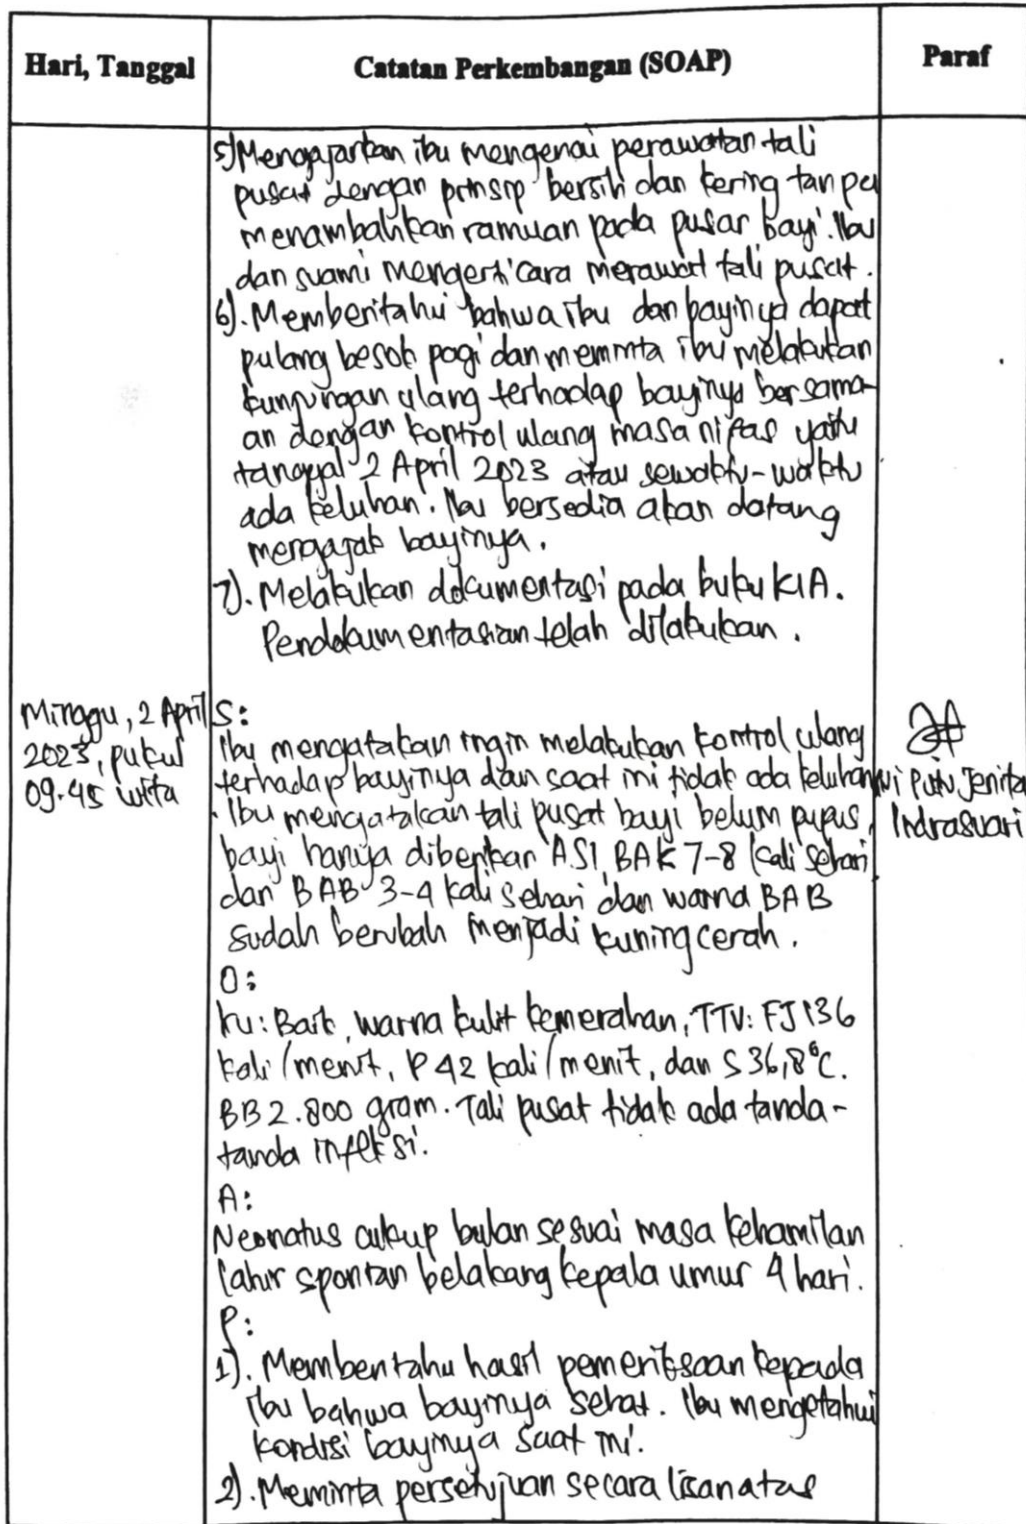 Hari, Tanggal
Catatan Perkembangan (SOAP)
Paraf
5) Mengajarkan ibu mengenai perawatan tali
pusat dengan prinsip bersih dan kering tanpa
menambahkan ramuan pada pusar bayi. Ibu
dan suami mengerti cara merawat tali pusat.
6). Memberitahu bahwa ibu dan bayinya dapat
pulang besok pagi dan meminta ibu melakukan
kunjungan ulang terhadap bayinya bersama-
an dengan kontrol ulang masa nifas yaitu
tanggal 2 April 2023 atau sewaktu-waktu
ada keluhan. Ibu bersedia akan datang
mengajak bayinya.
7). Melakukan dokumentasi pada buku KIA.
Pendokumentasian telah dilakukan.
Minggu, 2 April
2023, pukul
09.45 wita
S:
Ibu mengatakan ingin melakukan kontrol ulang
terhadap bayinya dan saat ini tidak ada keluhan
. Ibu mengatakan tali pusat bayi belum pupus,
bayi hanya diberikan ASI, BAK 7-8 kali sehari
dan BAB 3-4 kali sehari dan warna BAB
sudah berubah menjadi kuning cerah.
O:
ku: Baik, warna kulit kemerahan, TTV: FJ 136
kali/menit, P 42 kali/menit, dan S 36,8°C.
BB 2.800 gram. Tali pusat tidak ada tanda-
tanda infeksi.
A:
Neonatus cukup bulan sesuai masa kehamilan
lahir spontan belakang kepala umur 4 hari.
P:
1). Memberitahu hasil pemeriksaan kepada
ibu bahwa bayinya sehat. Ibu mengetahui
kondisi bayinya saat ini.
2). Meminta persetujuan secara lisan atas
Ni Putu Jenita
Indrasuari